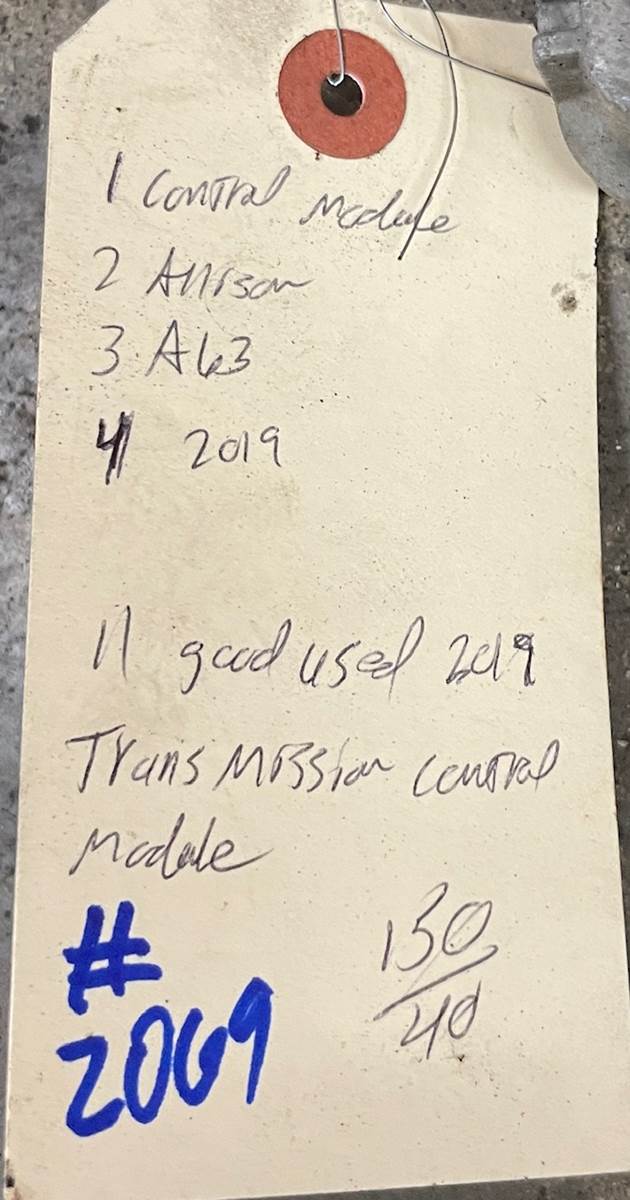 1 Control Module
2 Allison
3 A63
4 2019
11 good used 2019
Transmission control
Module
#
2069
150
40